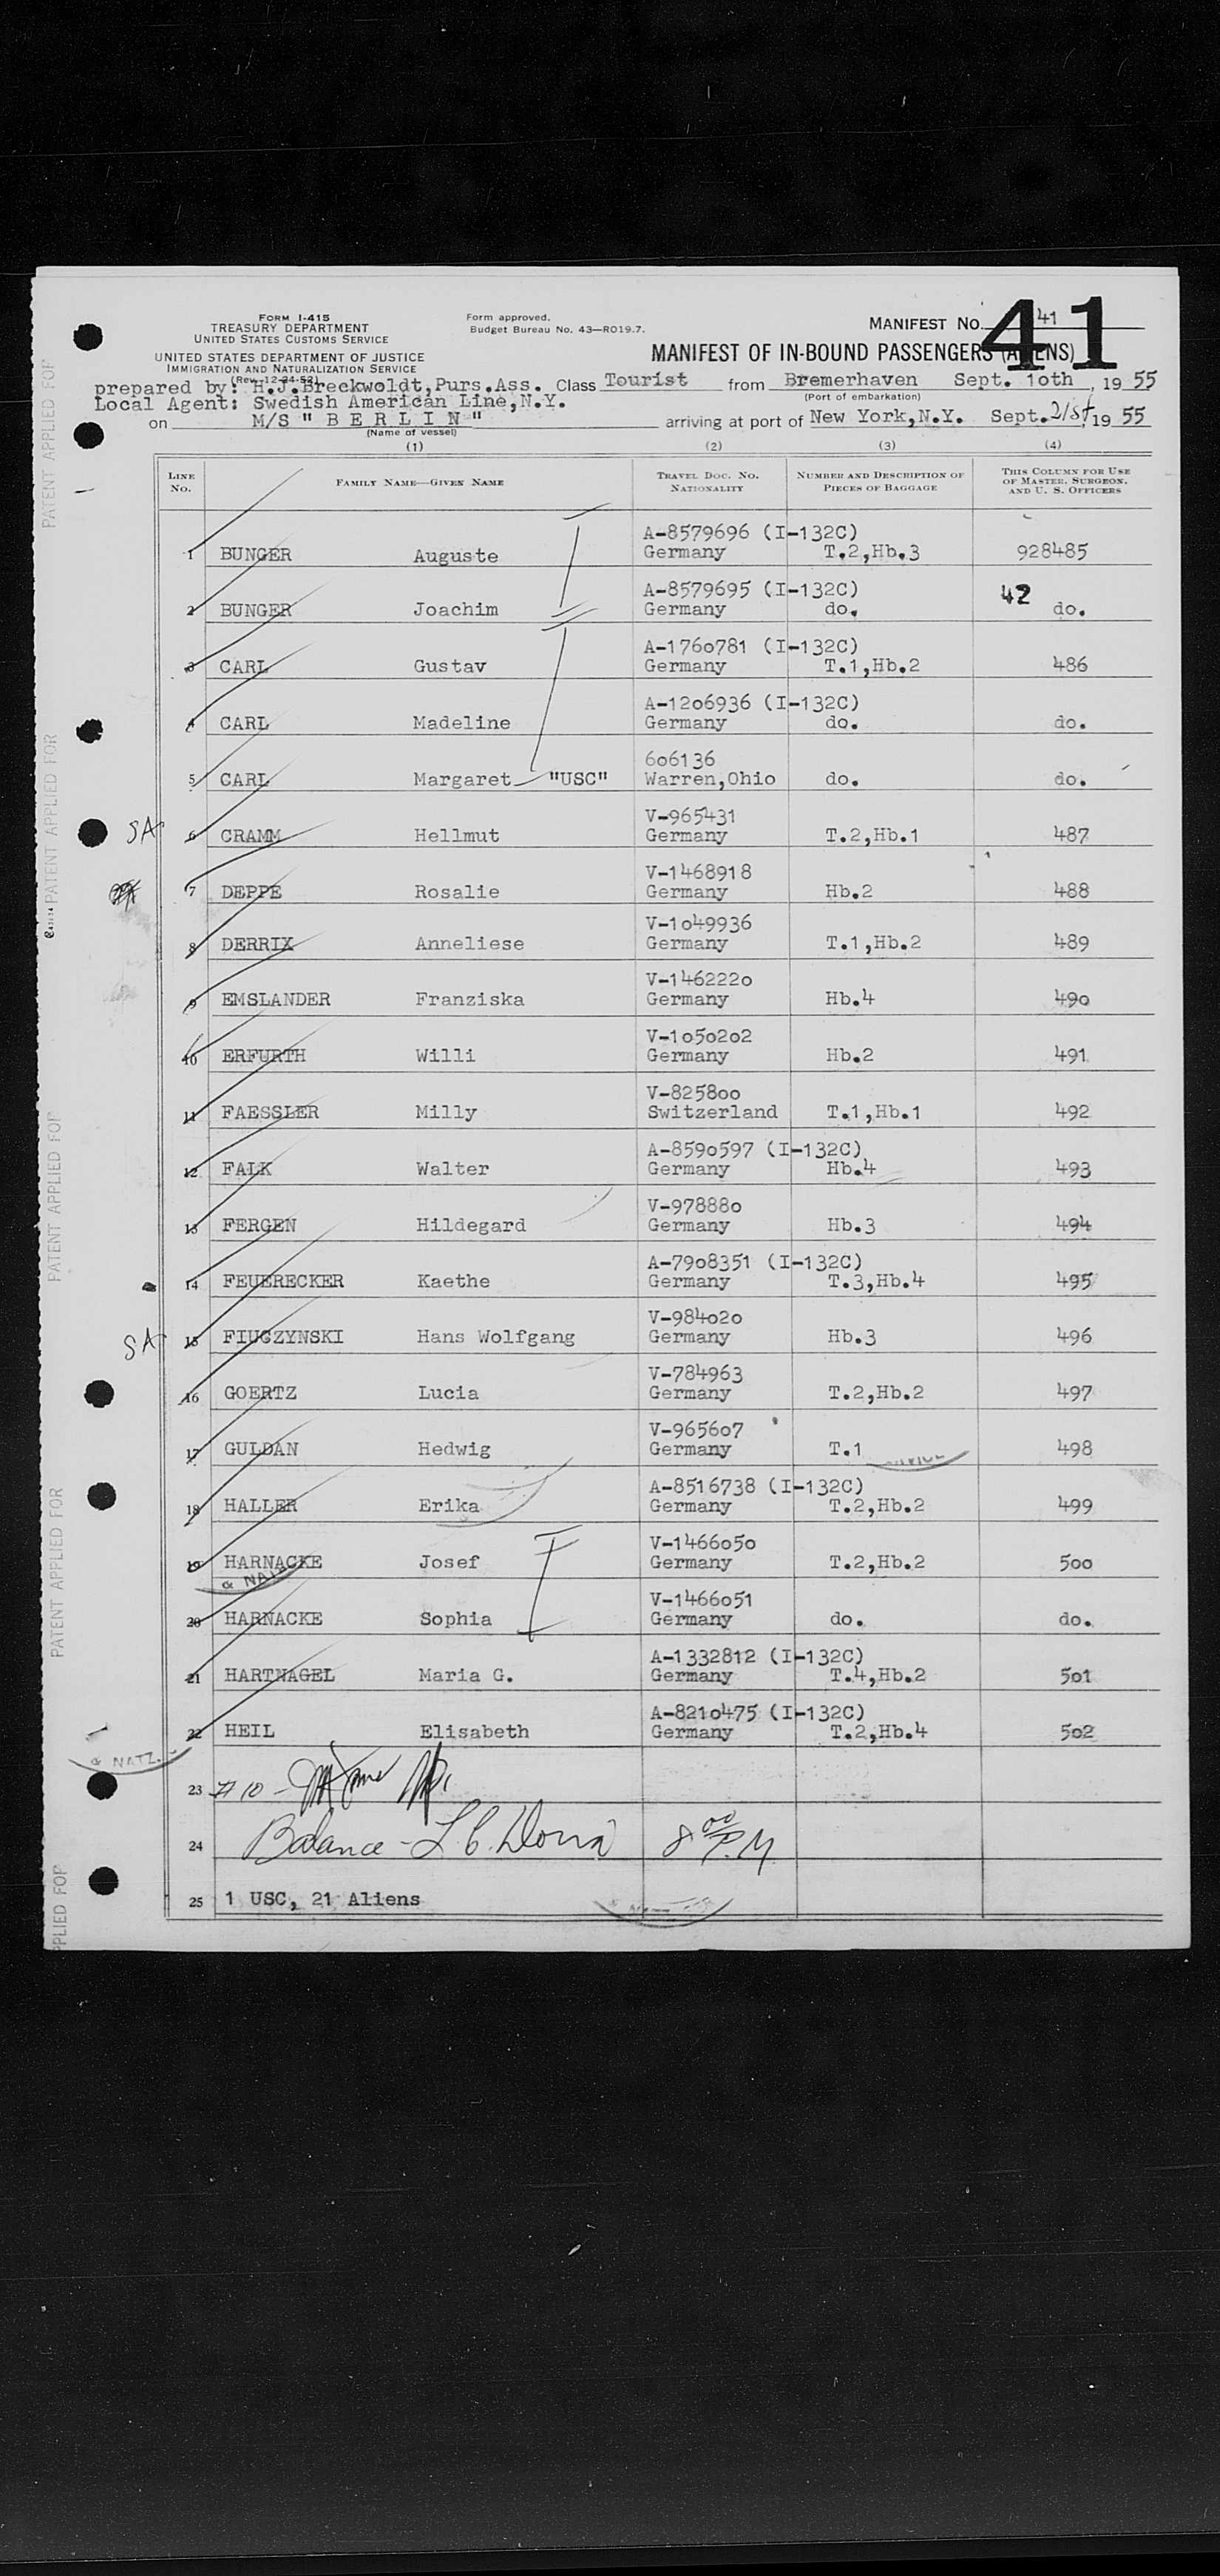 FORM I-415
TREASURY DEPARTMENT
UNITED STATES CUSTOMS SERVICE
UNITED STATES DEPARTMENT OF JUSTICE
IMMIGRATION AND NATURALIZATION SERVICE
(Rev. 12-24-52)
Form approved.
Budget Bureau No. 43—R019.7.
MANIFEST No. 41
41
MANIFEST OF IN-BOUND PASSENGERS (ALIENS)
prepared by: H.J.Breckwoldt,Purs.Ass. Class Tourist from Bremerhaven Sept. 10th, 19 55
(Port of embarkation)
Local Agent: Swedish American Line,N.Y.
on M/S " B E R L I N " arriving at port of New York,N.Y. Sept. 21st 19 55
(Name of vessel)
(1) (2) (3) (4)
LINE No. FAMILY NAME—GIVEN NAME TRAVEL DOC. NO. NATIONALITY NUMBER AND DESCRIPTION OF PIECES OF BAGGAGE THIS COLUMN FOR USE OF MASTER, SURGEON, AND U. S. OFFICERS
A-8579696 (I-132C)
1 BUNGER Auguste Germany T.2,Hb.3 928485
A-8579695 (I-132C) 42
2 BUNGER Joachim Germany do. do.
A-1760781 (I-132C)
3 CARL Gustav Germany T.1,Hb.2 486
A-1206936 (I-132C)
4 CARL Madeline Germany do. do.
606136
5 CARL Margaret "USC" Warren,Ohio do. do.
V-965431
SA 6 CRAMM Hellmut Germany T.2,Hb.1 487
V-1468918
7 DEPPE Rosalie Germany Hb.2 488
V-1049936
8 DERRIX Anneliese Germany T.1,Hb.2 489
V-1462220
9 EMSLANDER Franziska Germany Hb.4 490
V-1050202
10 ERFURTH Willi Germany Hb.2 491
V-825800
11 FAESSLER Milly Switzerland T.1,Hb.1 492
A-8590597 (I-132C)
12 FALK Walter Germany Hb.4 493
V-978880
13 FERGEN Hildegard Germany Hb.3 494
A-7908351 (I-132C)
14 FEUERECKER Kaethe Germany T.3,Hb.4 495
V-984020
SA 15 FIUCZYNSKI Hans Wolfgang Germany Hb.3 496
V-784963
16 GOERTZ Lucia Germany T.2,Hb.2 497
V-965607
17 GULDAN Hedwig Germany T.1 498
A-8516738 (I-132C)
18 HALLER Erika Germany T.2,Hb.2 499
V-1466050
19 HARNACKE Josef Germany T.2,Hb.2 500
V-1466051
20 HARNACKE Sophia Germany do. do.
A-1332812 (I-132C)
21 HARTNAGEL Maria G. Germany T.4,Hb.2 501
A-8210475 (I-132C)
22 HEIL Elisabeth Germany T.2,Hb.4 502
& NATZ.
23 #10 -
24 Balance - 8 00 P.M.
25 1 USC, 21 Aliens
PATENT APPLIED FOR
PATENT APPLIED FOR
PATENT APPLIED FOR
PATENT APPLIED FOR
PPLIED FOR